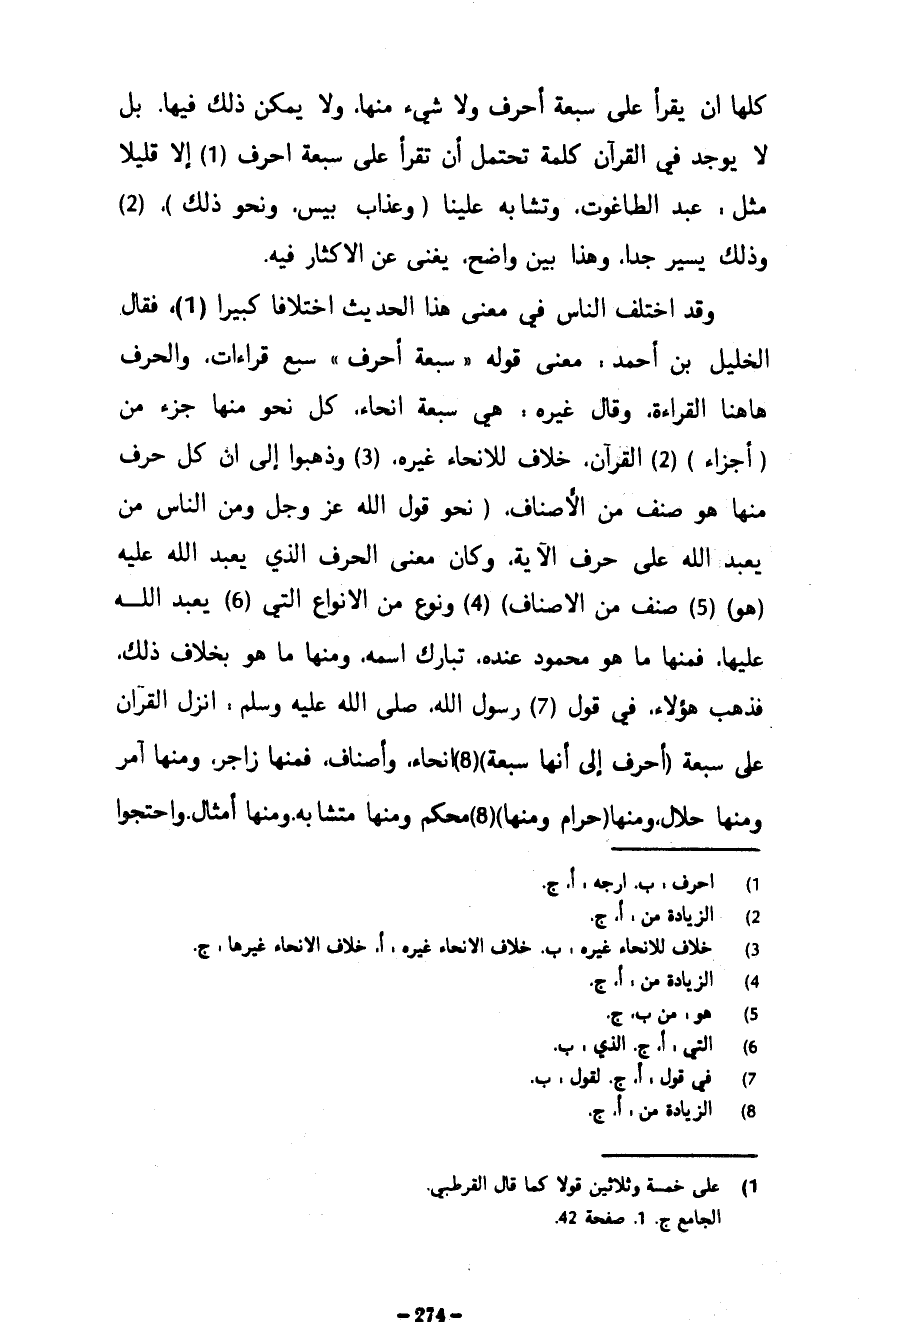 كلها ان يقرأ على سبعة أحرف ولا شيء منها، ولا يمكن ذلك فيها، بل
لا يوجد في القرآن كلمة تحتمل أن تقرأ على سبعة احرف (1) إلا قليلا
مثل : عبد الطاغوت، وتشابه علينا ( وعذاب بيس، ونحو ذلك )، (2)
وذلك يسير جدا، وهذا بين واضح، يغنى عن الاكثار فيه.
وقد اختلف الناس في معنى هذا الحديث اختلافا كبيرا (1)، فقال
الخليل بن أحمد : معنى قوله « سبعة أحرف » سبع قراءات، والحرف
هاهنا القراءة، وقال غيره : هي سبعة انحاء، كل نحو منها جزء من
( أجزاء ) (2) القرآن، خلاف للانحاء غيره، (3) وذهبوا إلى ان كل حرف
منها هو صنف من الأصناف، ( نحو قول الله عز وجل ومن الناس من
يعبد الله على حرف الآية، وكان معنى الحرف الذي يعبد الله عليه
(هو) (5) صنف من الاصناف) (4) ونوع من الانواع التي (6) يعبد اللـــه
عليها، فمنها ما هو محمود عنده، تبارك اسمه، ومنها ما هو بخلاف ذلك،
فذهب هؤلاء، في قول (7) رسول الله، صلى الله عليه وسلم : انزل القرآن
على سبعة (أحرف إلى أنها سبعة)(8)انحاء، وأصناف، فمنها زاجر، ومنها آمر
ومنها حلال،ومنها(حرام ومنها)(8)محكم ومنها متشابه،ومنها أمثال.واحتجوا
1) احرف : ب. ارجه : أ. ج.
2) الزيادة من : أ. ج.
3) خلاف للانحاء غيره : ب. خلاف الانحاء غيره : أ. خلاف الانحاء غيرها : ج.
4) الزيادة من : أ. ج.
5) هو : من ب. ج.
6) التي : أ. ج. الذي : ب.
7) في قول : أ. ج. لقول : ب.
8) الزيادة من : أ. ج.
1) على خمسة وثلاثين قولا كما قال القرطبي.
الجامع ج. 1. صفحة 42.
- 274 -